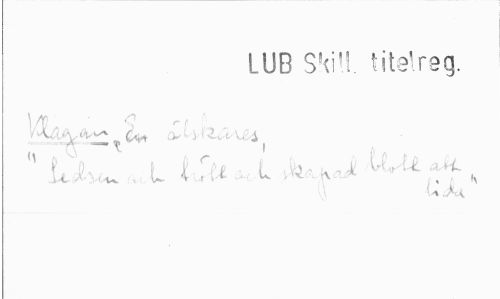 LUB Skill. titelreg.
Klagan, En älskares,
" Ledsen och trött och skapad blott att
lida"